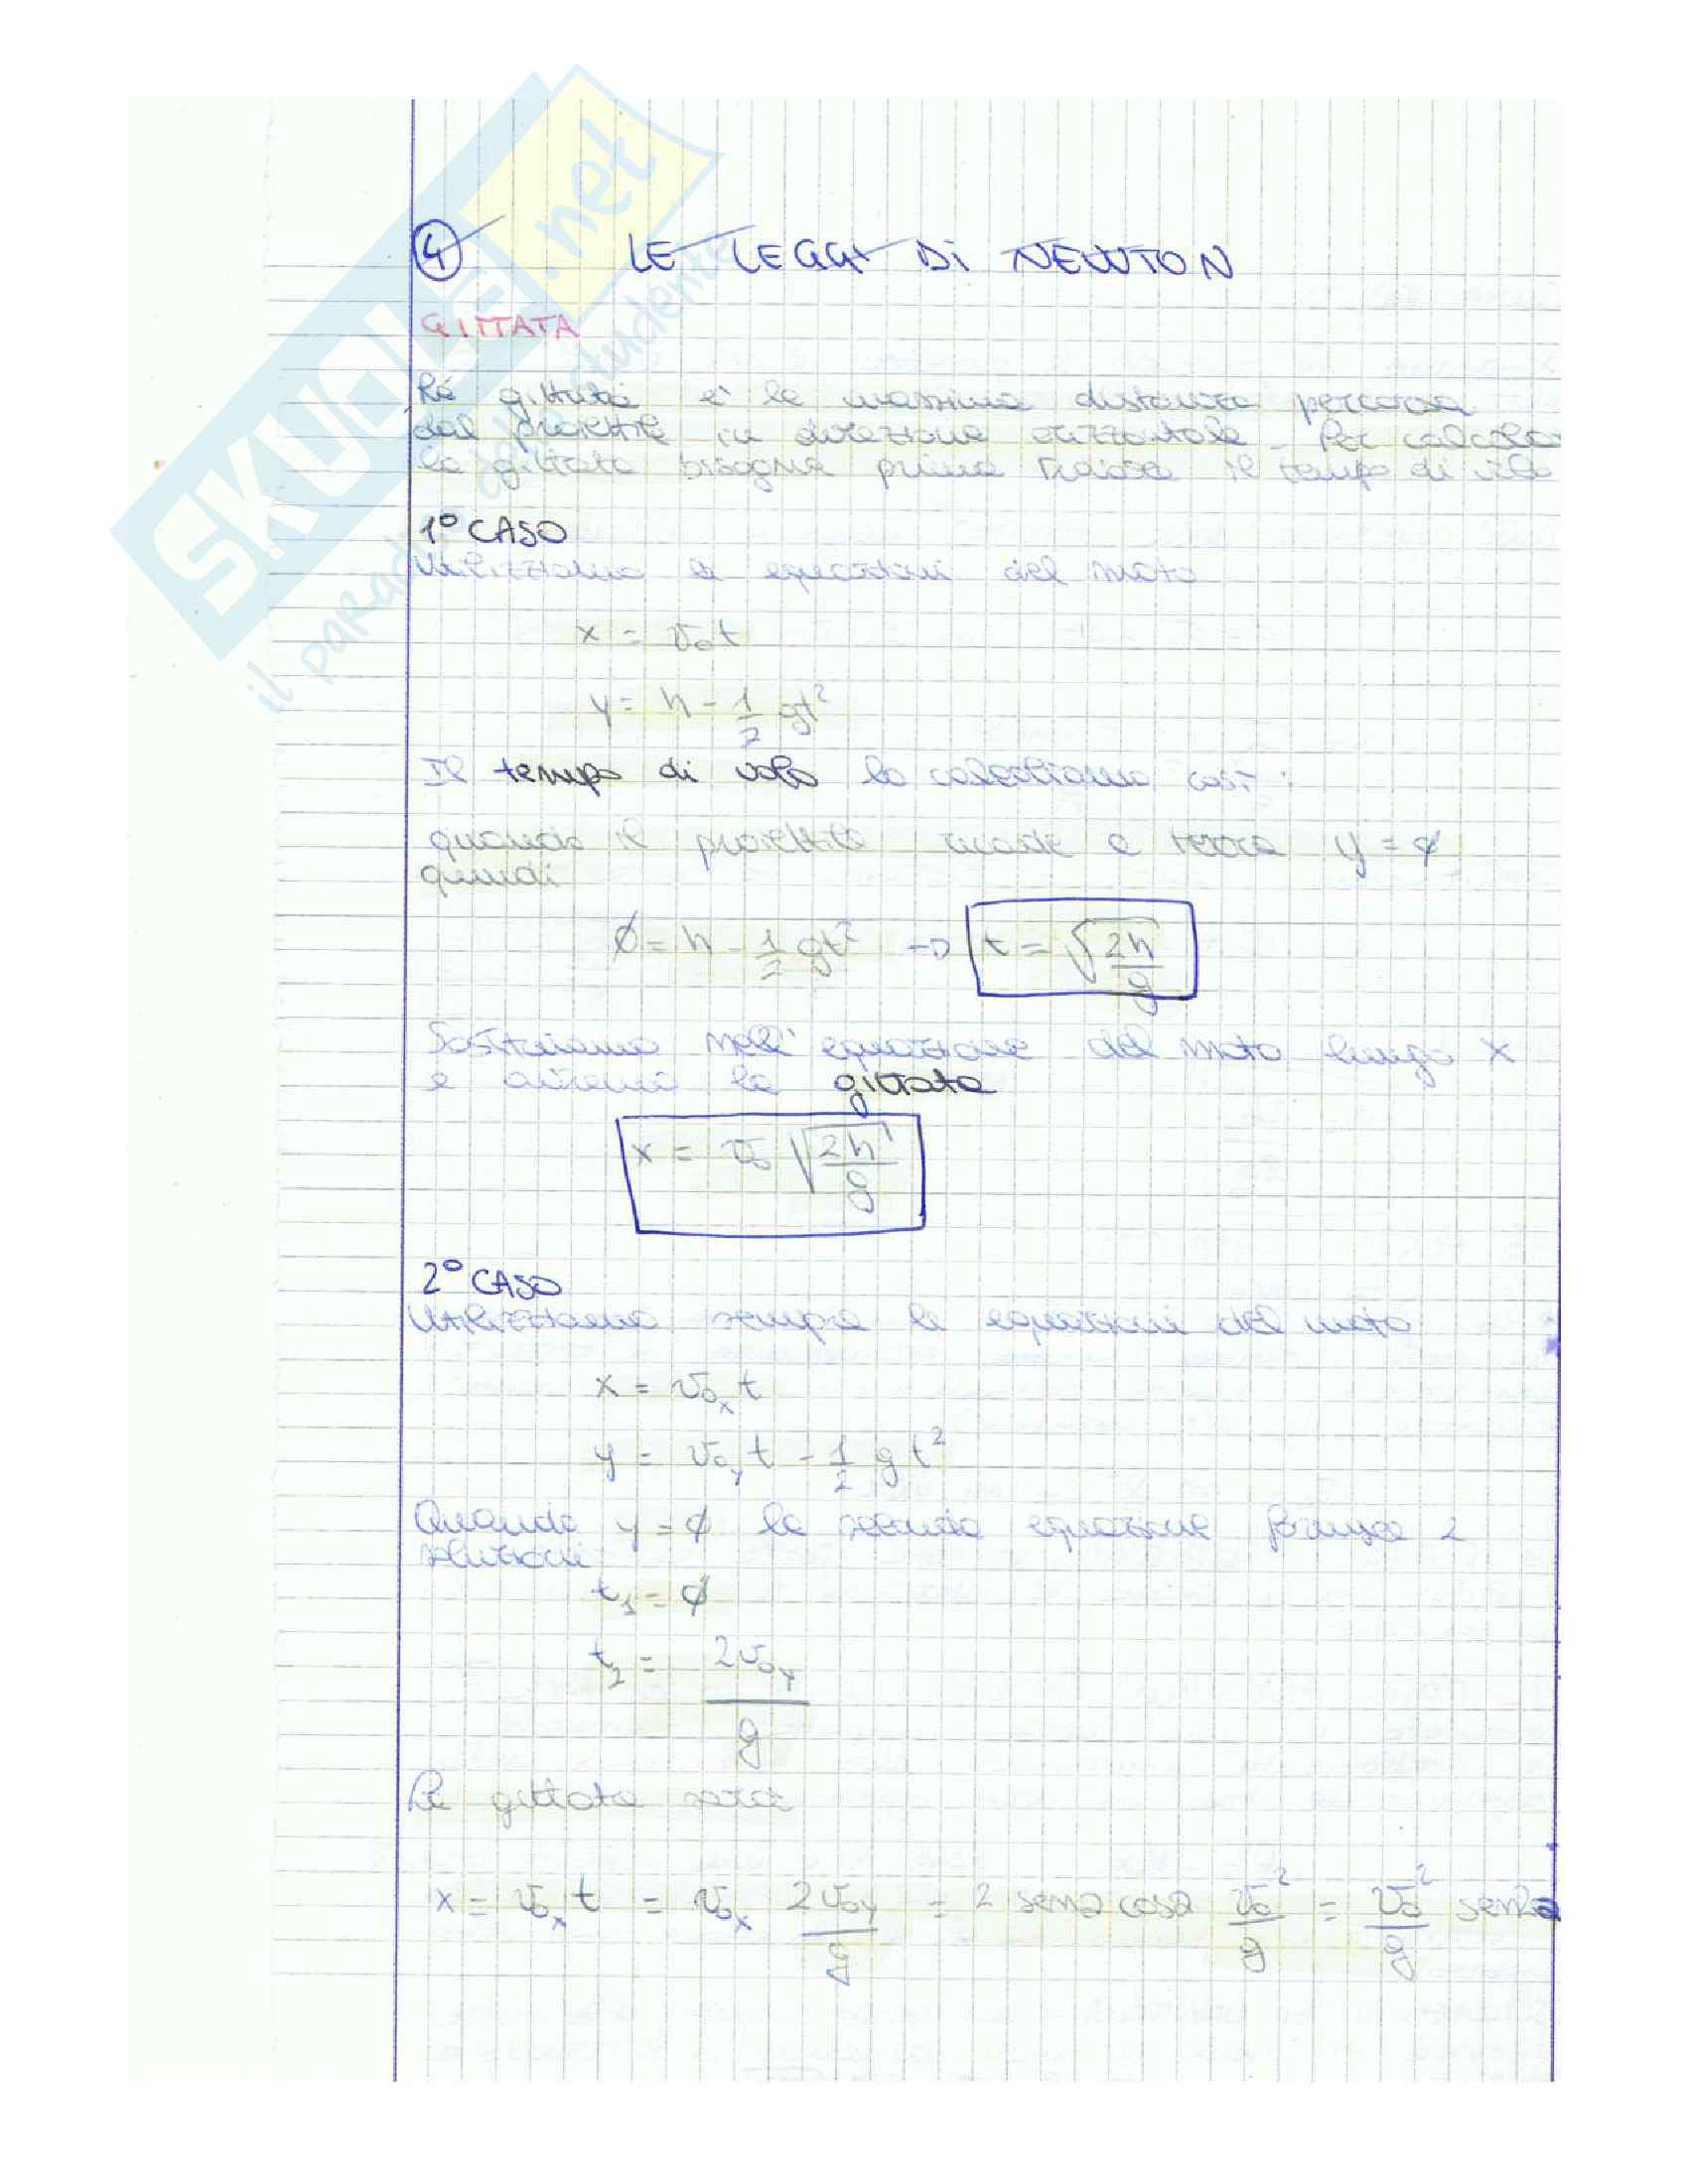 SKUOLA.net
il paradiso dello studente
4 LE LEGGI DI NEWTON
GITTATA
La gittata è la massima distanza percorsa
dal proiettile in direzione orizzontale. Per calcola
la gittata bisogna prima trovare il tempo di volo
1° CASO
Utilizziamo le equazioni del moto
x = v₀t
y = h - 1/2 gt²
Il tempo di volo lo calcoliamo così:
quando il proiettile cade a terra y = ϕ
quindi
ϕ = h - 1/2 gt² → t = √(2h/g)
Sostituiamo nell'equazione del moto lungo x
e avremo la gittata
x = v₀ √(2h/g)
2° CASO
Utilizziamo sempre le equazioni del moto
x = v₀ₓ t
y = v₀y t - 1/2 g t²
Quando y = ϕ la seconda equazione fornisce 2
soluzioni
t₁ = ϕ
t₂ = 2v₀y/g
La gittata sarà
x = v₀ₓ t = v₀ₓ 2v₀y/g = 2 senα cosα v₀²/g = v₀²/g sen2α